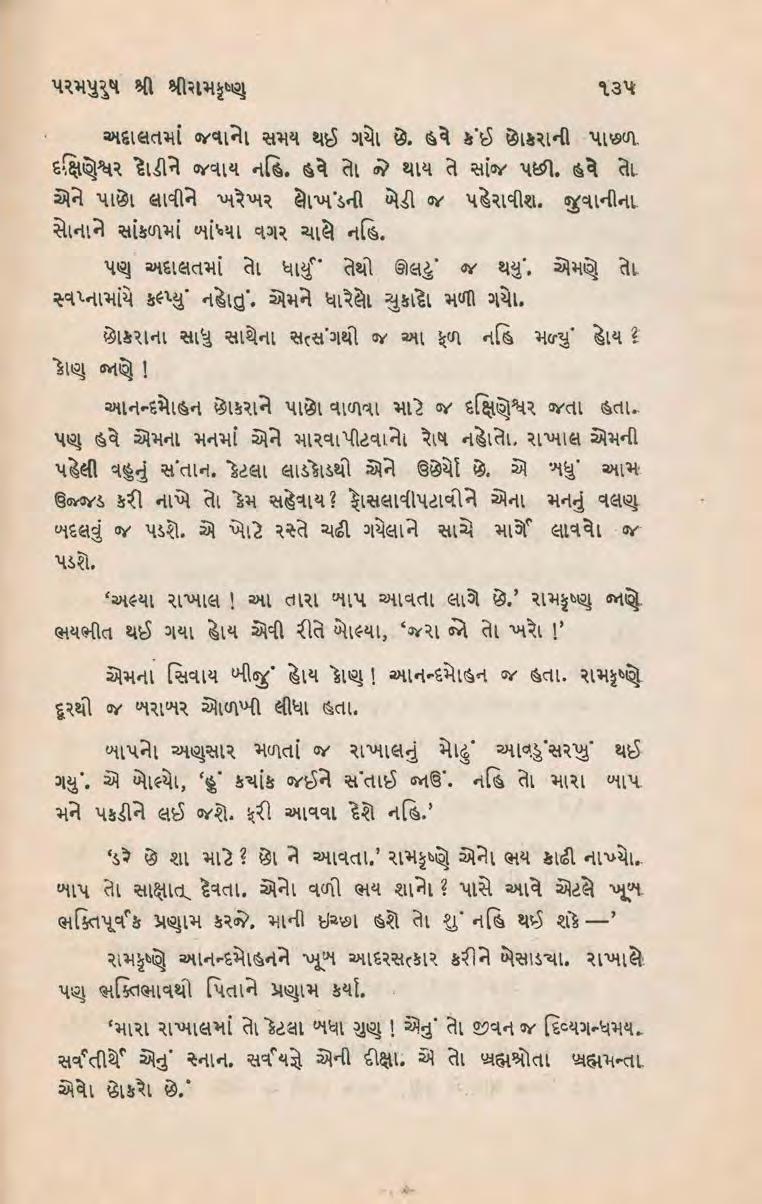 પરમપુરુષ શ્રી શ્રીરામકૃષ્ણ ૧૩૫
અદાલતમાં જવાનો સમય થઈ ગયો છે. હવે કંઈ છોકરાની પાછળ
દક્ષિણેશ્વર દોડીને જવાય નહિ. હવે તો જે થાય તે સાંજ પછી. હવે તો
એને પાછો લાવીને ખરેખર લોખંડની બેડી જ પહેરાવીશ. જુવાનીના
સોનાને સાંકળમાં બાંધ્યા વગર ચાલે નહિ.
પણ અદાલતમાં તો ધાર્યું તેથી ઊલટું જ થયું. એમણે તો
સ્વપ્નામાંયે કલ્પ્યું નહોતું. એમને ધારેલો ચુકાદો મળી ગયો.
છોકરાના સાધુ સાથેના સત્સંગથી જ આ ફળ નહિ મળ્યું હોય ?
કોણ જાણે !
આનન્દમોહન છોકરાને પાછો વાળવા માટે જ દક્ષિણેશ્વર જતા હતા.
પણ હવે એમના મનમાં એને મારવાપીટવાનો રોષ નહોતો. રાખાલ એમની
પહેલી વહુનું સંતાન. કેટલા લાડકોડથી એને ઉછેર્યો છે. એ બધું આમ
ઉજ્જડ કરી નાખે તો કેમ સહેવાય? ફોસલાવીપટાવીને એના મનનું વલણ
બદલવું જ પડશે. એ ખોટે રસ્તે ચઢી ગયેલાને સાચે માર્ગે લાવવો જ
પડશે.
‘અલ્યા રાખાલ ! આ તારા બાપ આવતા લાગે છે.’ રામકૃષ્ણ જાણે
ભયભીત થઈ ગયા હોય એવી રીતે બોલ્યા, ‘જરા જો તો ખરો !’
એમના સિવાય બીજું હોય કોણ ! આનન્દમોહન જ હતા. રામકૃષ્ણે
દૂરથી જ બરાબર ઓળખી લીધા હતા.
બાપનો અણસાર મળતાં જ રાખાલનું મોઢું આવડુંસરખું થઈ
ગયું. એ બોલ્યો, ‘હું કયાંક જઈને સંતાઈ જાઉં. નહિ તો મારા બાપ
મને પકડીને લઈ જશે. ફરી આવવા દેશે નહિ.’
‘ડરે છે શા માટે? છો ને આવતા.’ રામકૃષ્ણે એનો ભય કાઢી નાખ્યો.
બાપ તો સાક્ષાત્ દેવતા. એનો વળી ભય શાનો ? પાસે આવે એટલે ખૂબ
ભક્તિપૂર્વક પ્રણામ કરજે. માની ઇચ્છા હશે તો શું નહિ થઈ શકે —’
રામકૃષ્ણે આનન્દમોહનને ખૂબ આદરસત્કાર કરીને બેસાડયા. રાખાલે
પણ ભક્તિભાવથી પિતાને પ્રણામ કર્યા.
‘મારા રાખાલમાં તો કેટલા બધા ગુણ ! એનું તો જીવન જ દિવ્યગન્ધમય.
સર્વતીર્થે એનું સ્નાન. સર્વયજ્ઞે એની દીક્ષા. એ તો બ્રહ્મશ્રોતા બ્રહ્મમન્તા
એવો છોકરો છે.’